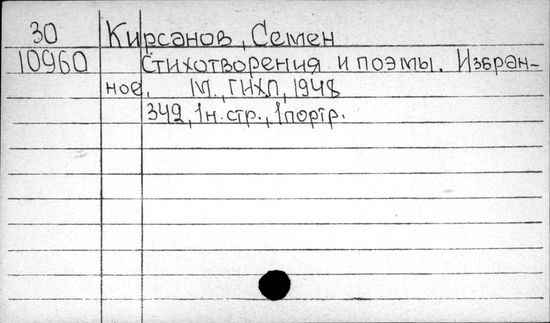 30 Кирсанов, Семен
10960 Стихотворения и поэмы. Избран-
ное. М., ГИХЛ, 1948
342, 1 н. стр., 1 портр.